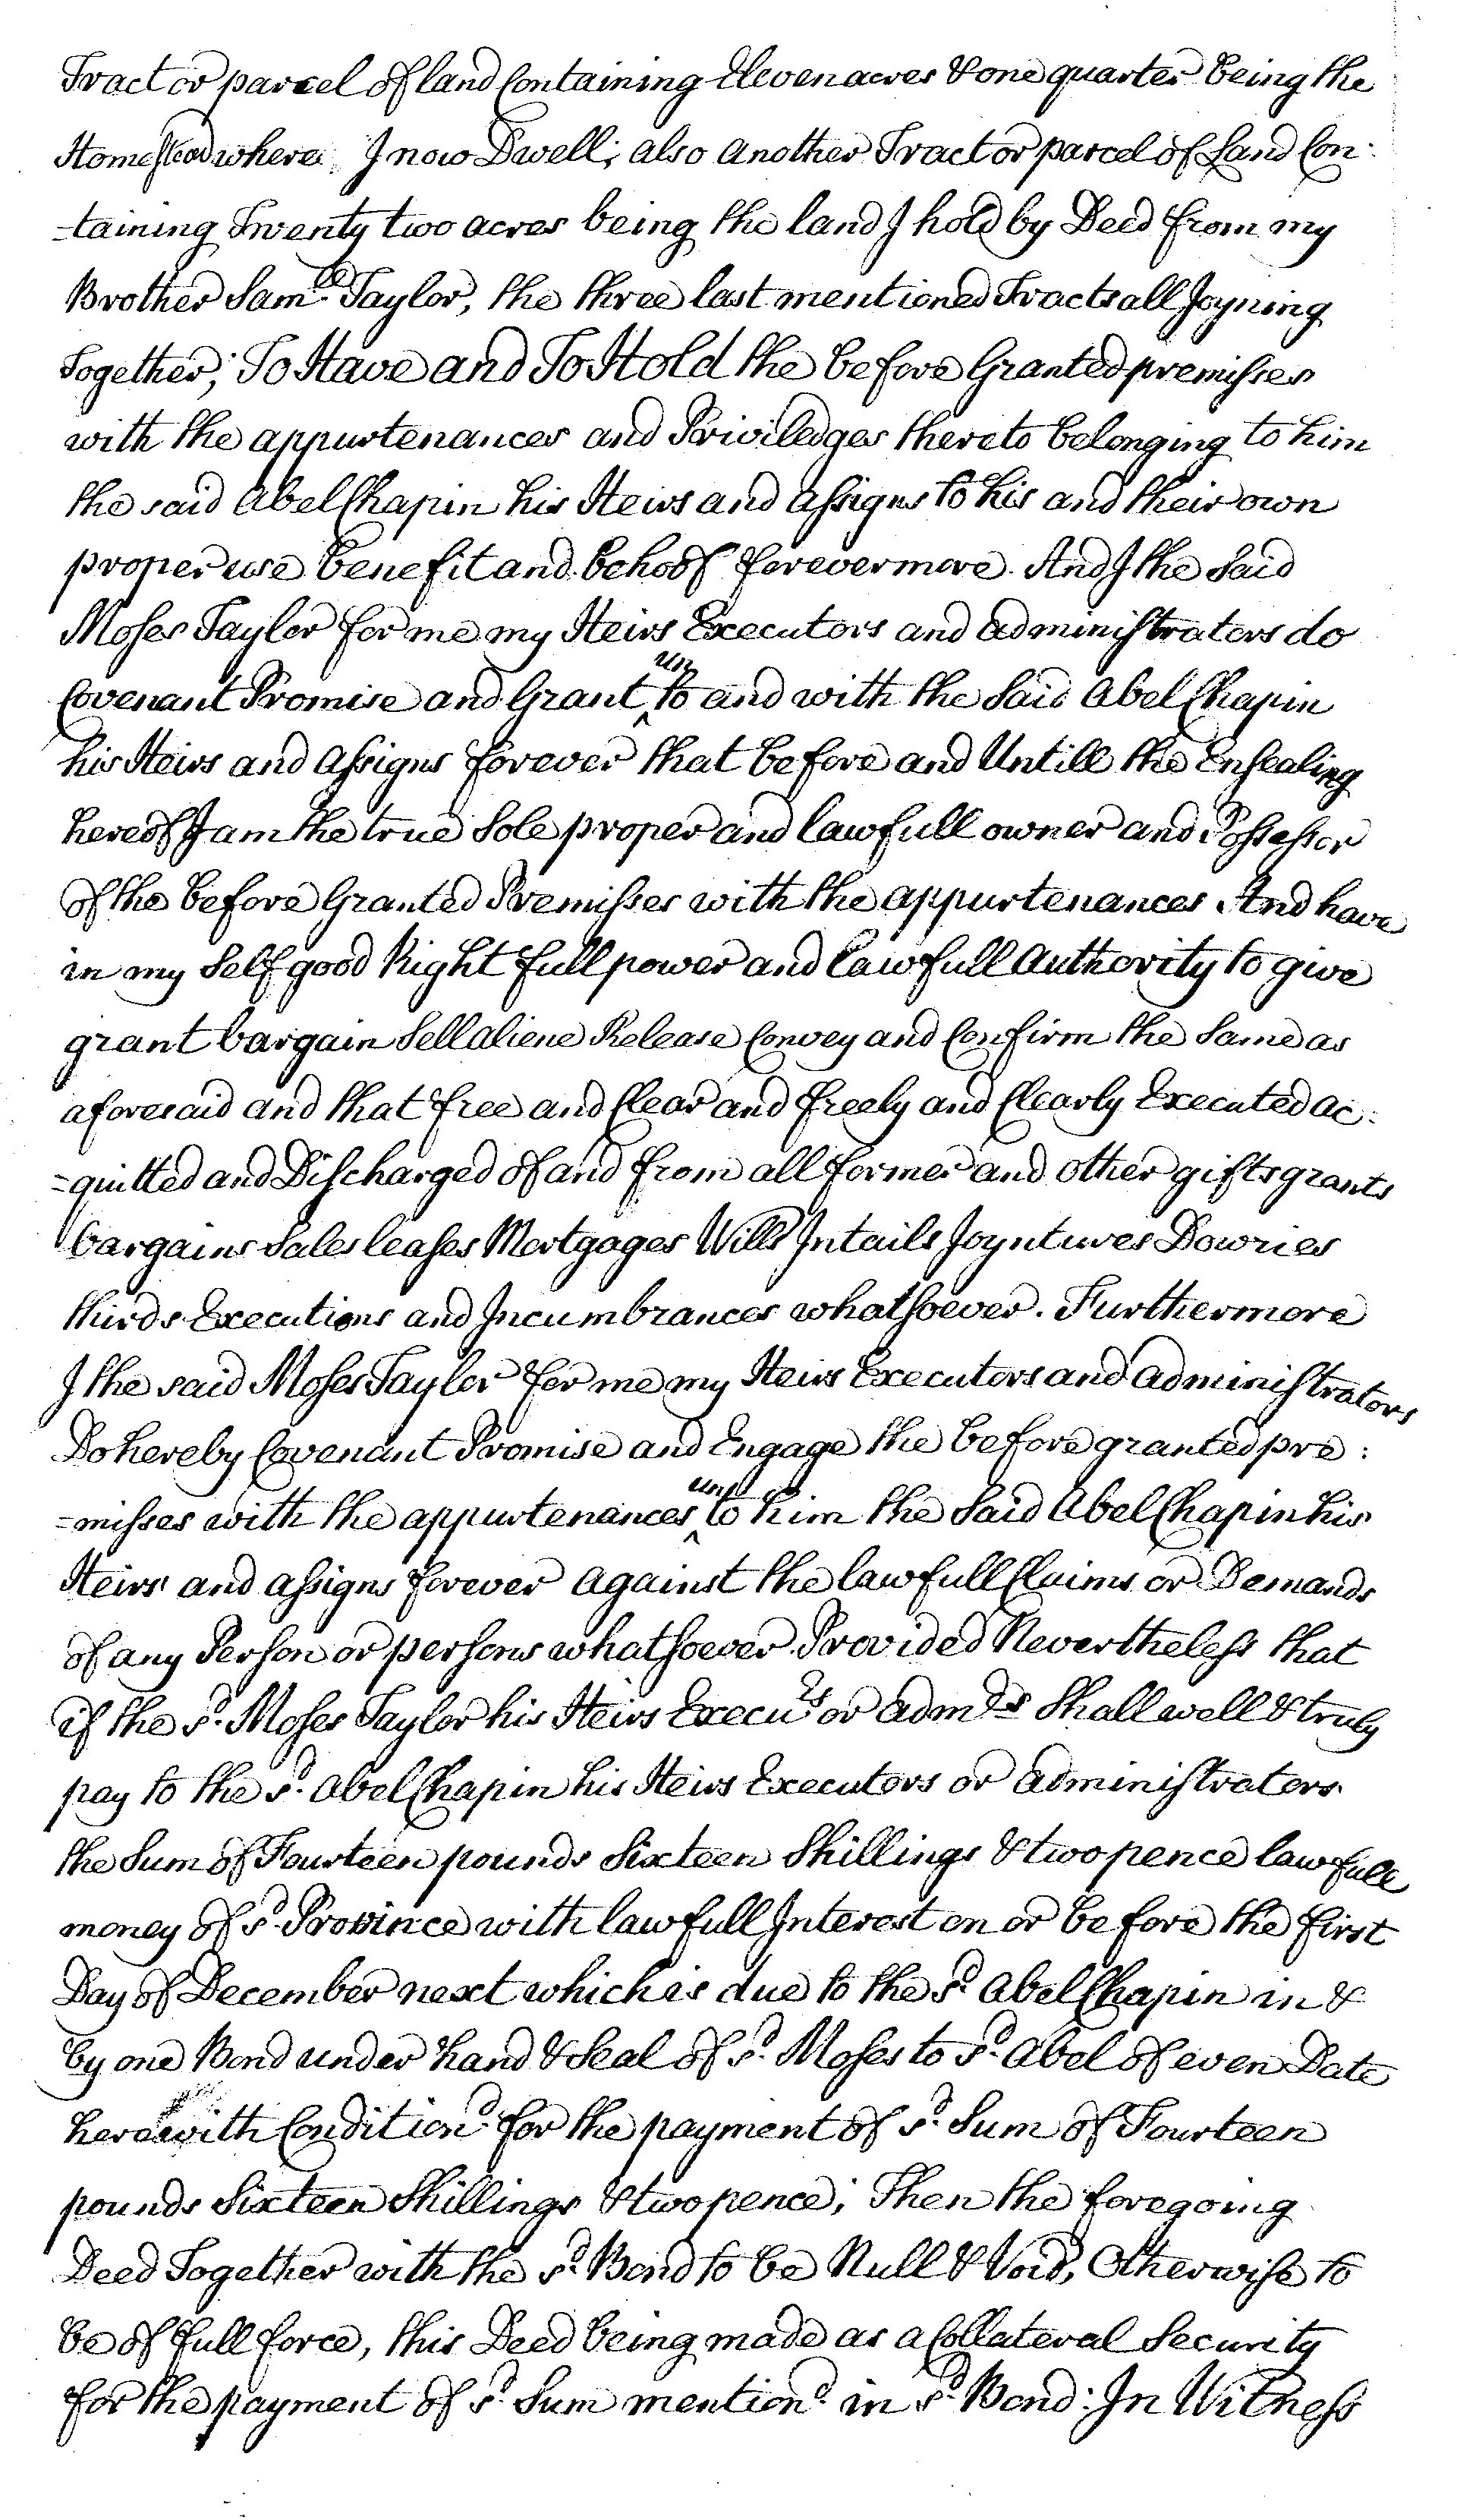 Tract or parcel of land Containing Eleven acres & one quarter being the
Homestead where I now Dwell; also Another Tract or parcel of Land Con:
=taining Twenty two acres being the land I hold by Deed from my
Brother Sam.ll Taylor, the three last mentioned Tracts all Joyning
Together; To Have and To Hold the before Granted premisses
with the appurtenances and Priviledges thereto belonging to him
the said Abel Chapin his Heirs and Assigns to his and their own
proper use benefit and behoof forevermore. And I the Said
Moses Taylor for me my Heirs Executors and administrators do
Covenant Promise and Grant ^un to and with the Said Abel Chapin
his Heirs and Assigns forever that before and Untill the Ensealing
hereof I am the true Sole proper and lawfull owner and Possessor
of the before Granted Premisses with the appurtenances And have
in my Self good Right full power and lawfull Authority to give
grant bargain Sell aliene Release Convey and Confirm the Same as
aforesaid and that free and Clear and freely and Clearly Executed ac:
=quitted and Discharged of and from all former and other gifts grants
bargains Sales leases Mortgages Wills Intails Joyntures Dowries
thirds Executions and Incumbrances whatsoever. Furthermore
I the said Moses Taylor for me my Heirs Executors and administrators
Do hereby Covenant Promise and Engage the before granted pre:
=misses with the appurtenances ^un to him the Said Abel Chapin his
Heirs and assigns forever against the lawfull Claims or Demands
of any Person or persons whatsoever. Provided Nevertheless that
if the s.d Moses Taylor his Heirs Execu.rs or adm.rs Shall well & truly
pay to the s.d Abel Chapin his Heirs Executors or administrators
the Sum of Fourteen pounds Sixteen Shillings & two pence lawfull
money of s.d Province with lawfull Interest on or before the first
Day of December next which is due to the s.d Abel Chapin in &
by one Bond under hand & Seal of s.d Moses to s.d Abel of even Date
herewith Condition.d for the payment of s.d Sum of Fourteen
pounds Sixteen Shillings & two pence; Then the foregoing
Deed Together with the s.d Bond to be Null & Void, Otherwise to
be of full force, this Deed being made as a Collateral Security
for the payment of s.d Sum mention.d in s.d Bond: In Witness